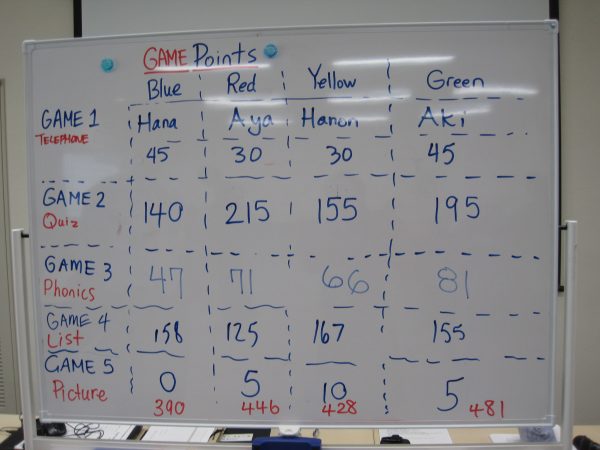 GAME Points
Blue Red Yellow Green
GAME 1 Hana Aya Hanon Aki
TELEPHONE
45 30 30 45
GAME 2 140 215 155 195
Quiz
GAME 3 47 71 66 81
Phonics
GAME 4 158 125 167 155
List
GAME 5 0 5 10 5
Picture
390 446 428 481